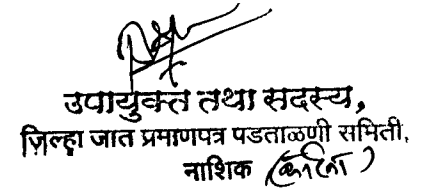 उपायुक्त तथा सदस्य,
ज़िल्हा जात प्रमाणपत्र पडताळणी समिती,
नाशिक